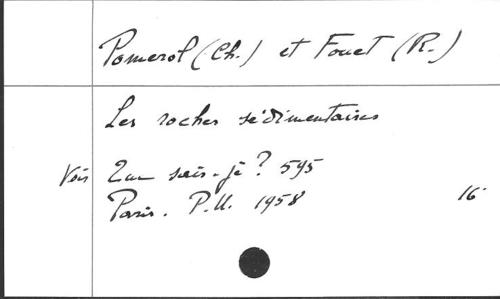 Pomerol (Ch.) et Fouet (R.)
Les roches sédimentaires
Voir Que sais-je ? 595
Paris. P.U. 1958 16°